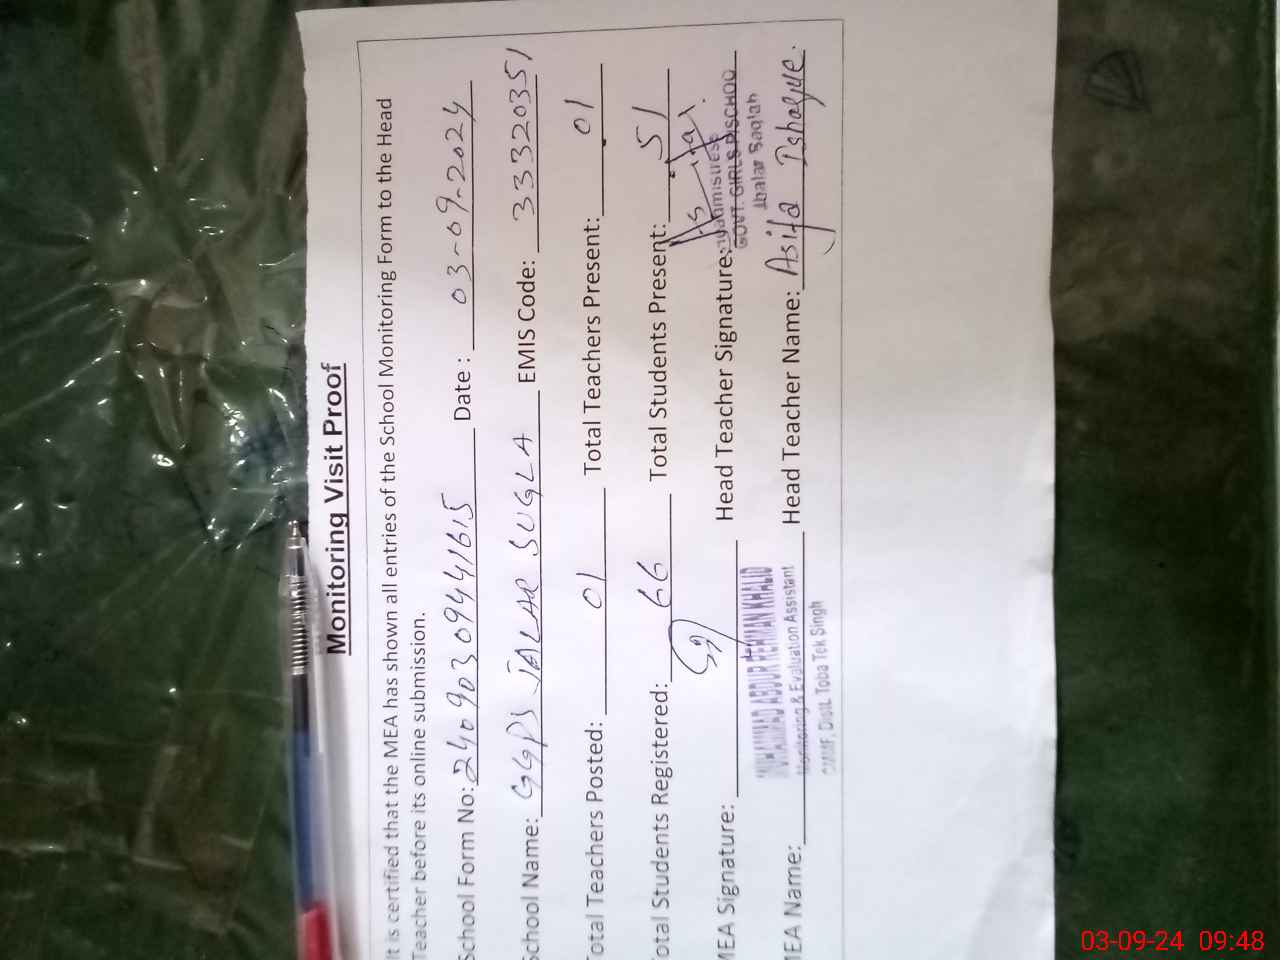 Monitoring Visit Proof
It is certified that the MEA has shown all entries of the School Monitoring Form to the Head
Teacher before its online submission.
School Form No: 24090309441615 Date : 03-09-2024
School Name: GGPS JALAR SUGLA EMIS Code: 33320351
Total Teachers Posted: 01 Total Teachers Present: 01
Total Students Registered: 66 Total Students Present: 51
MEA Signature: Head Teacher Signature:
GOVT. GIRLS P/SCHOO
Jhalar Saglah
MUHAMMAD ABDUR REHMAN KHALID
Monitoring & Evaluation Assistant
CMMF, Distt. Toba Tek Singh
MEA Name: Head Teacher Name: Asifa Ishaque
03-09-24 09:48